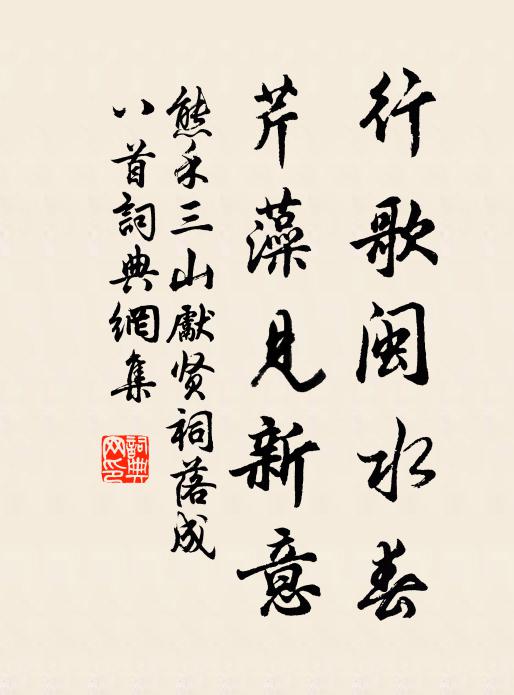 行歌闽水春
芹藻见新意
熊禾三山獻贤祠落成
八首詞典網集
詞典网印